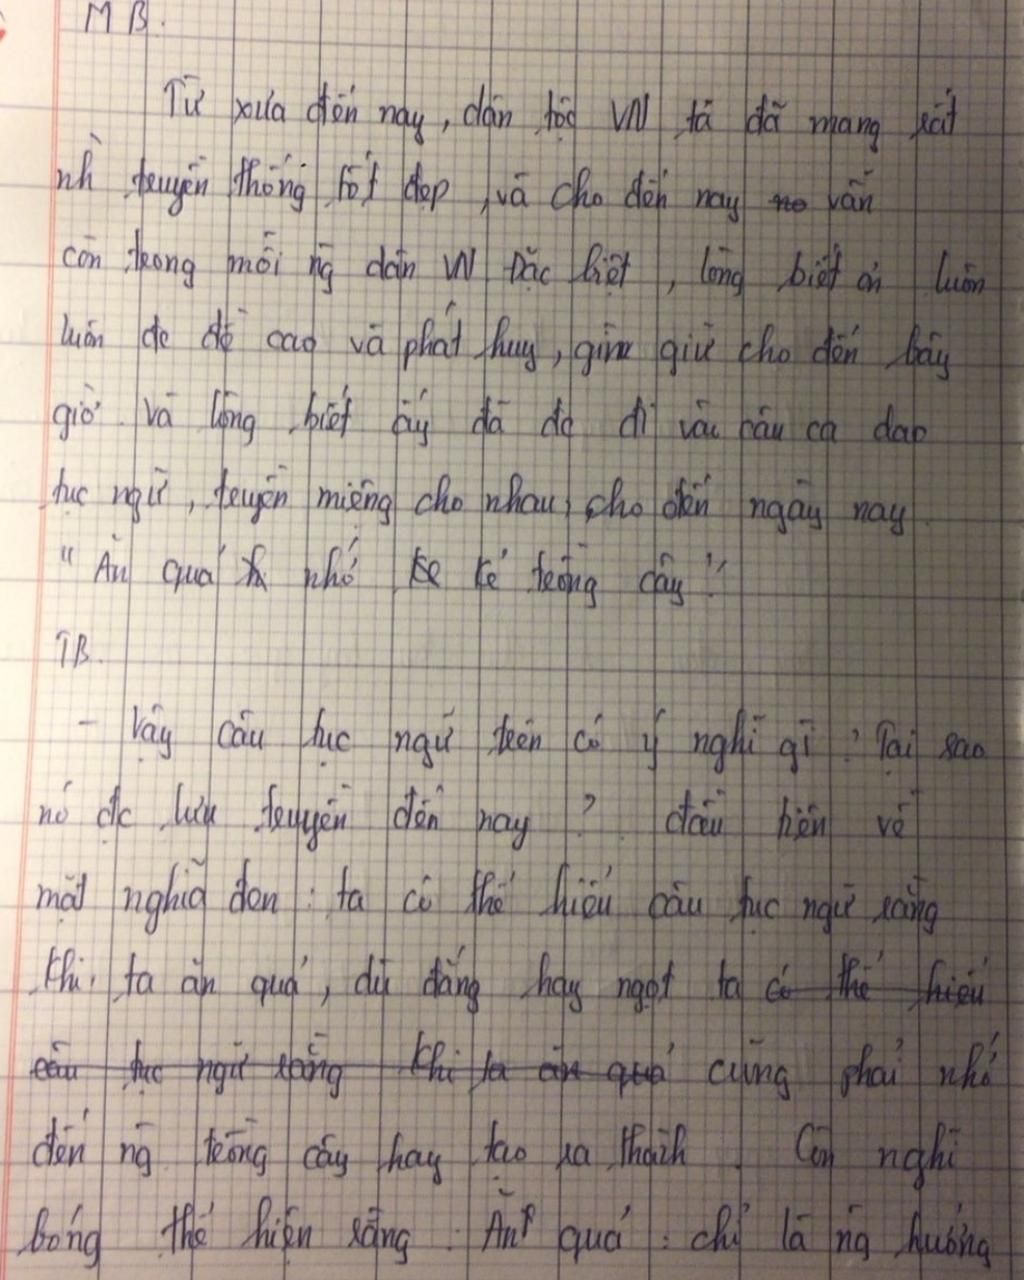 MB.
Từ xưa đến nay, dân tộc VN ta đã mang rất
nh` truyền thống tốt đẹp, và cho đến nay no vẫn
còn trong mỗi ng̀ dân VN Đặc biệt, lòng biết ơn luôn
luôn đc đề cao và phát huy, gìn giữ cho đến bây
giờ. Và lòng biết ấy đã đc đi vào câu ca dao
tục ngữ, truyền miệng cho nhau, cho đến ngày nay
"Ăn quả nhớ kẻ trồng cây"
TB.
- Vậy câu tục ngữ trên có ý nghĩ gì? Tại sao
nó đc lưu truyền đến nay? đầu tiên về
mặt nghĩa đen: ta có thể hiểu câu tục ngữ rằng
khi ta ăn quả, dù đắng hay ngọt ta có thể hiểu
câu tục ngữ rằng khi ta ăn quả cũng phải nhớ
đến ng̀ trồng cây hay tạo ra thành. Còn nghĩ
bóng thể hiện rằng: Ăn quả: chỉ là ng̀ hưởng